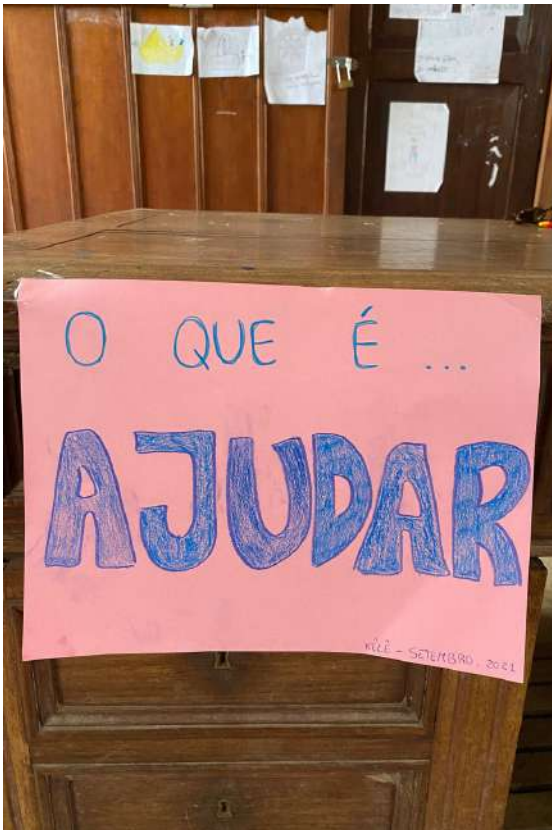 O QUE É ...
AJUDAR
KÊLÊ - SETEMBRO, 2021